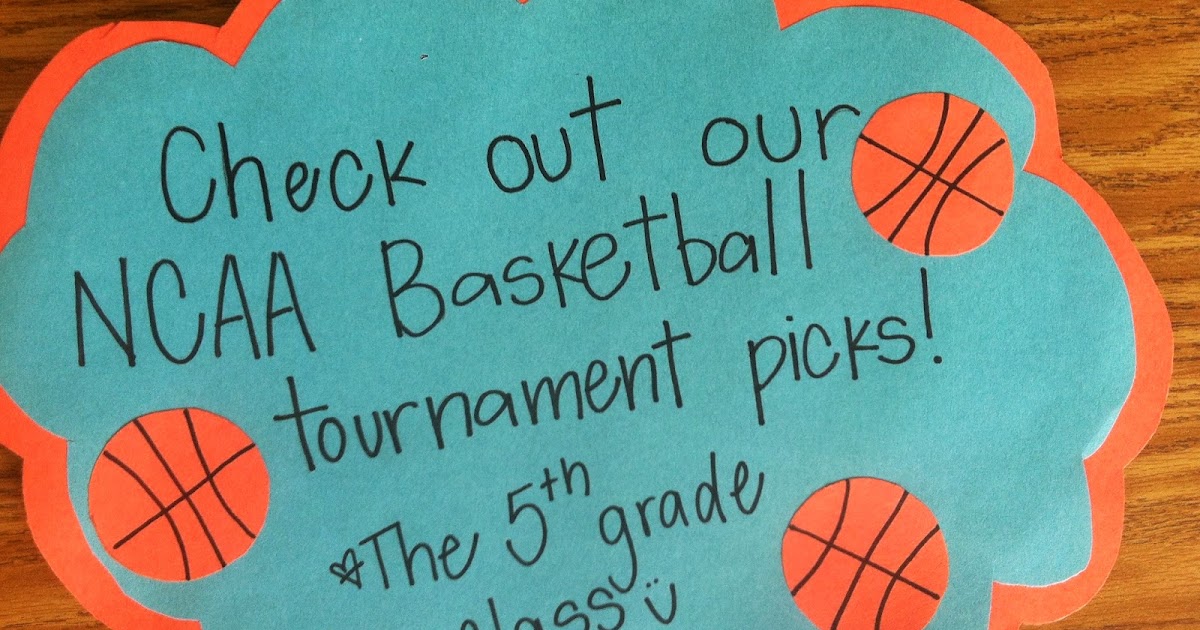 Check out our
NCAA Basketball
tournament picks!
The 5th grade
class